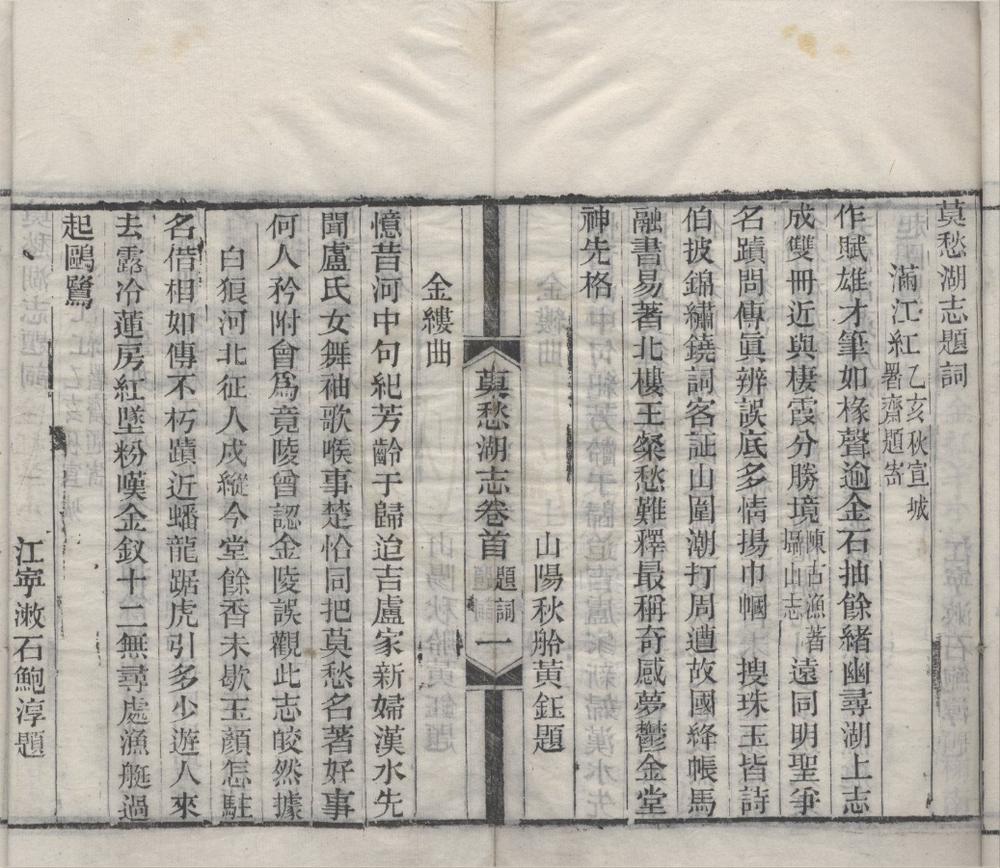 莫愁湖志題詞
滿江紅乙亥秋宣城署齋題寄
作賦雄才筆如椽聲逾金石抽餘緒幽尋湖上志
成雙冊近與棲霞分勝境陳古漁著攝山志遠同明聖爭
名蹟問傳眞辨誤底多情揚巾幗　搜珠玉皆詩
伯披錦繡鐃詞客証山圍潮打周遭故國絳帳馬
融書易著北樓王粲愁難釋最稱奇感夢鬱金堂
神先格
山陽秋舲黃鈺題
莫愁湖志卷首　題詞　一
金縷曲
憶昔河中句紀芳齡于歸迨吉盧家新婦漢水先
聞盧氏女舞袖歌喉事楚恰同把莫愁名著好事
何人矜附會爲竟陵曾認金陵誤觀此志皎然據
白狼河北征人戍縱今堂餘香未歇玉顏怎駐
名借相如傳不朽蹟近蟠龍踞虎引多少遊人來
去露冷蓮房紅墜粉嘆金釵十二無尋處漁艇過
起鷗鷺
江寜漱石鮑淳題